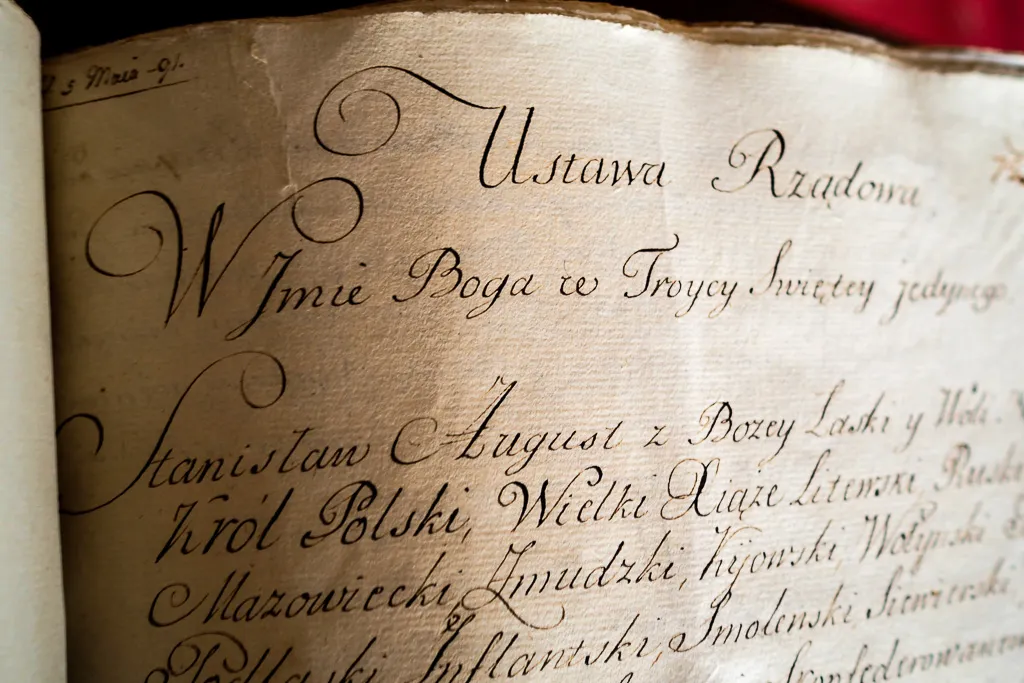 5 Maia -91.
Ustawa Rządowa
W Jmie Boga w Troycy Swiętey jedynego
Stanisław August z Bozey Łaski y Woli
Król Polski, Wielki Xiąże Litewski, Ruski
Mazowiecki, Zmudzki, Kijowski, Wołyński
Podlaski Inflantski, Smolenski, Siewierski